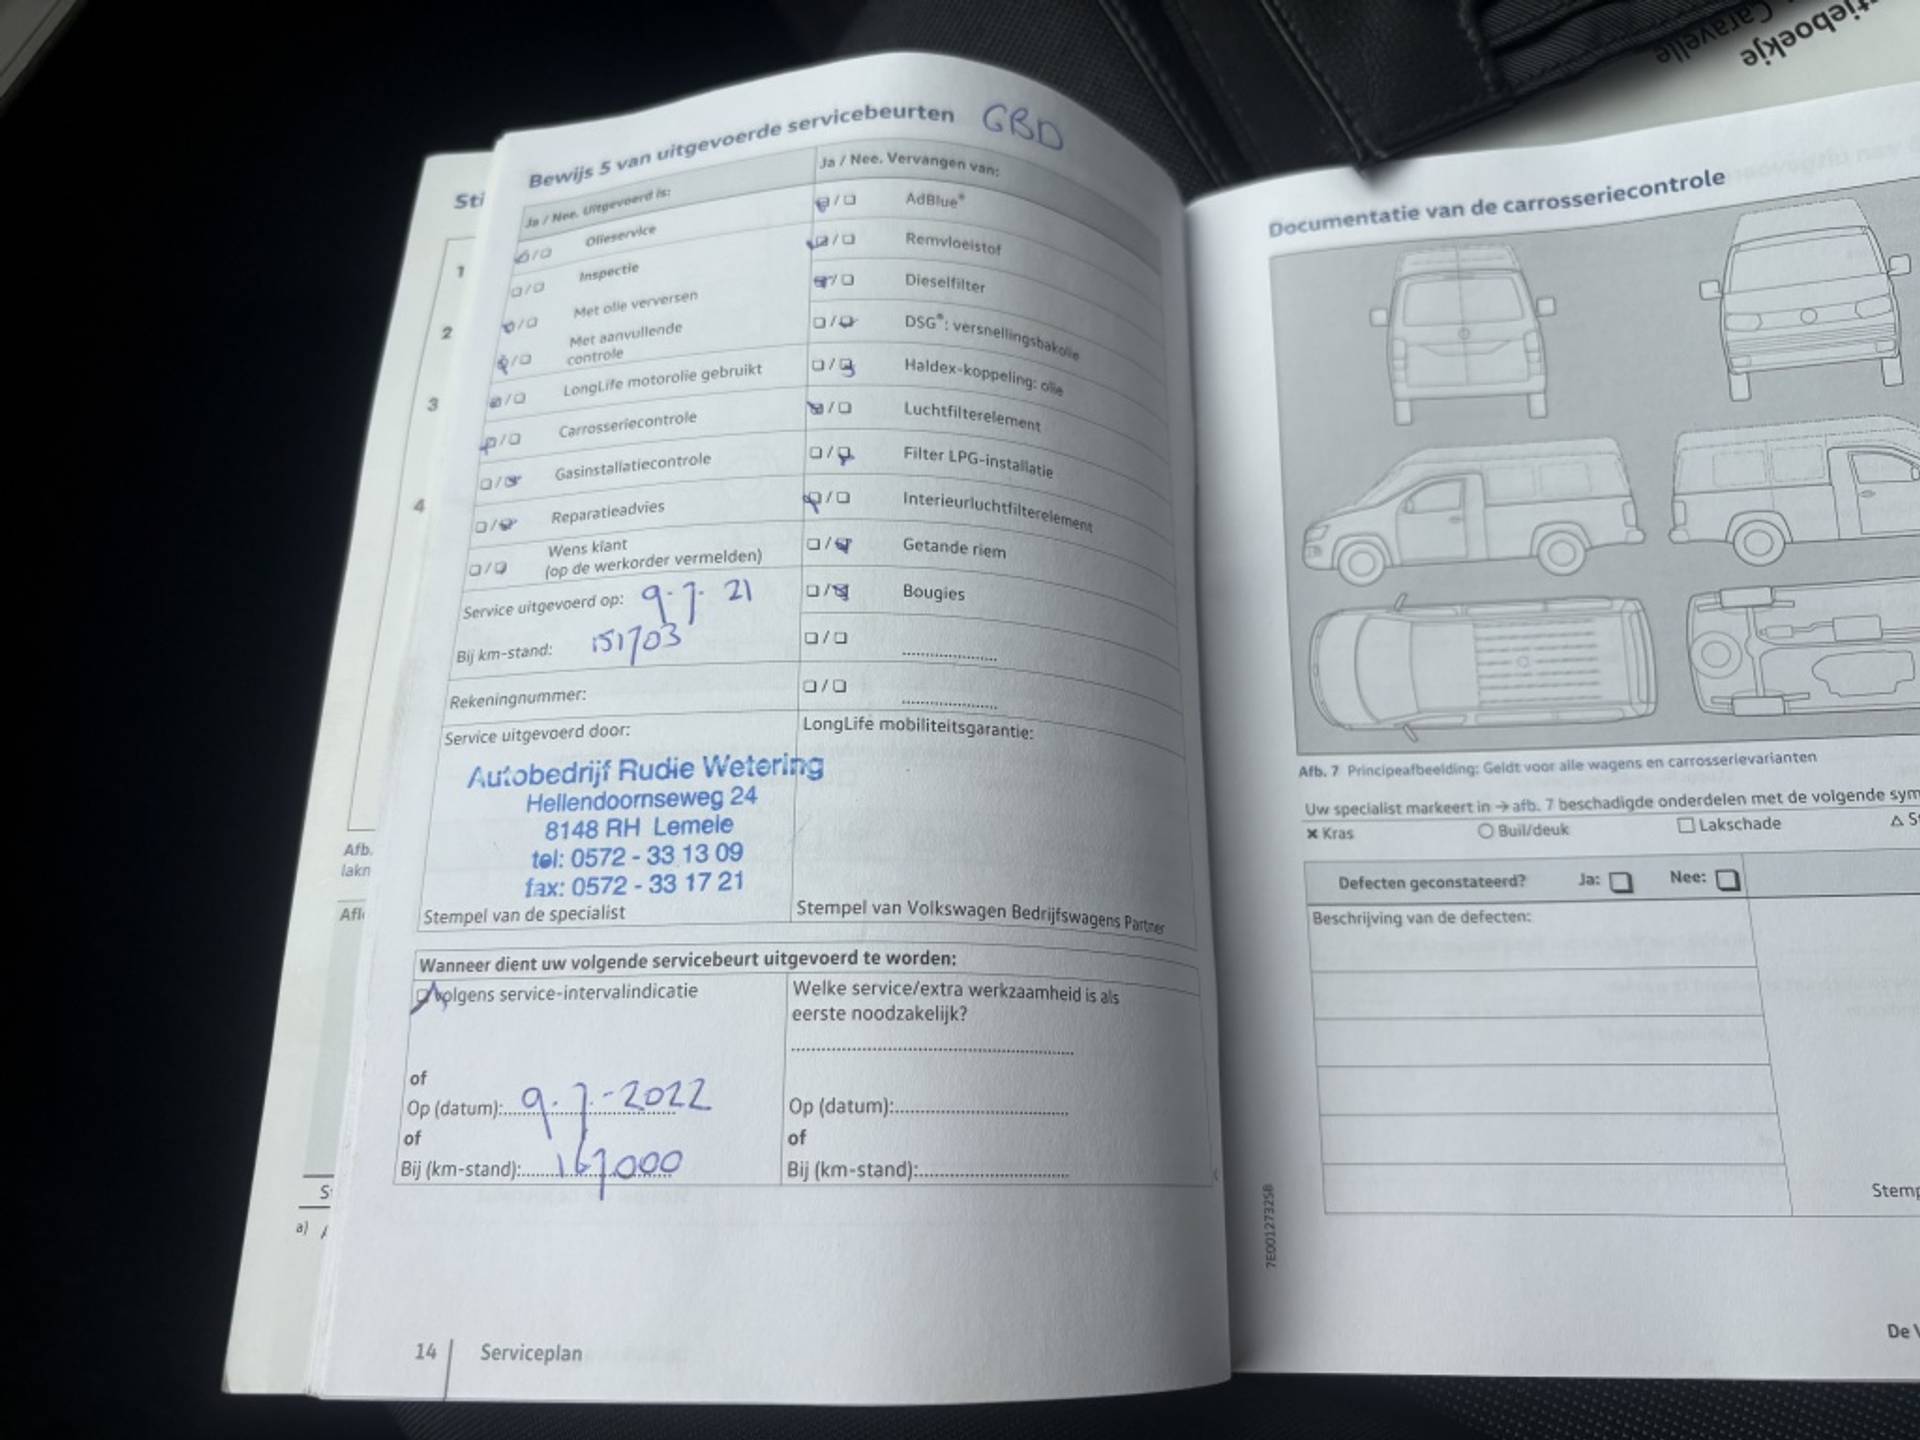 tieboekje
Caravelle
Sti
1
2
3
4
Afb.
lakn
Afl
S
a)
Bewijs 5 van uitgevoerde servicebeurten GBD
Ja / Nee. Uitgevoerd is:
Olieservice
Inspectie
Met olie verversen
Met aanvullende
controle
LongLife motorolie gebruikt
Carrosseriecontrole
Gasinstallatiecontrole
Reparatieadvies
Wens klant
(op de werkorder vermelden)
Service uitgevoerd op: 9-7-21
Bij km-stand: 151703
Rekeningnummer:
Service uitgevoerd door:
Autobedrijf Rudie Wetering
Hellendoornseweg 24
8148 RH Lemele
tel: 0572 - 33 13 09
fax: 0572 - 33 17 21
Stempel van de specialist
Ja / Nee. Vervangen van:
AdBlue®
Remvloeistof
Dieselfilter
DSG®: versnellingsbakolie
Haldex-koppeling: olie
Luchtfilterelement
Filter LPG-installatie
Interieurluchtfilterelement
Getande riem
Bougies
LongLife mobiliteitsgarantie:
Stempel van Volkswagen Bedrijfswagens Partner
Wanneer dient uw volgende servicebeurt uitgevoerd te worden:
volgens service-intervalindicatie
of
Op (datum): 9-7-2022
of
Bij (km-stand): 167000
Welke service/extra werkzaamheid is als
eerste noodzakelijk?
Op (datum):
of
Bij (km-stand):
14 Serviceplan
Documentatie van de carrosseriecontrole
Afb. 7 Principeafbeelding: Geldt voor alle wagens en carrosserievarianten
Uw specialist markeert in → afb. 7 beschadigde onderdelen met de volgende sym
× Kras ○ Buil/deuk □ Lakschade △ S
Defecten geconstateerd? Ja: □ Nee: □
Beschrijving van de defecten:
Stemp
7E0012732SB
De V